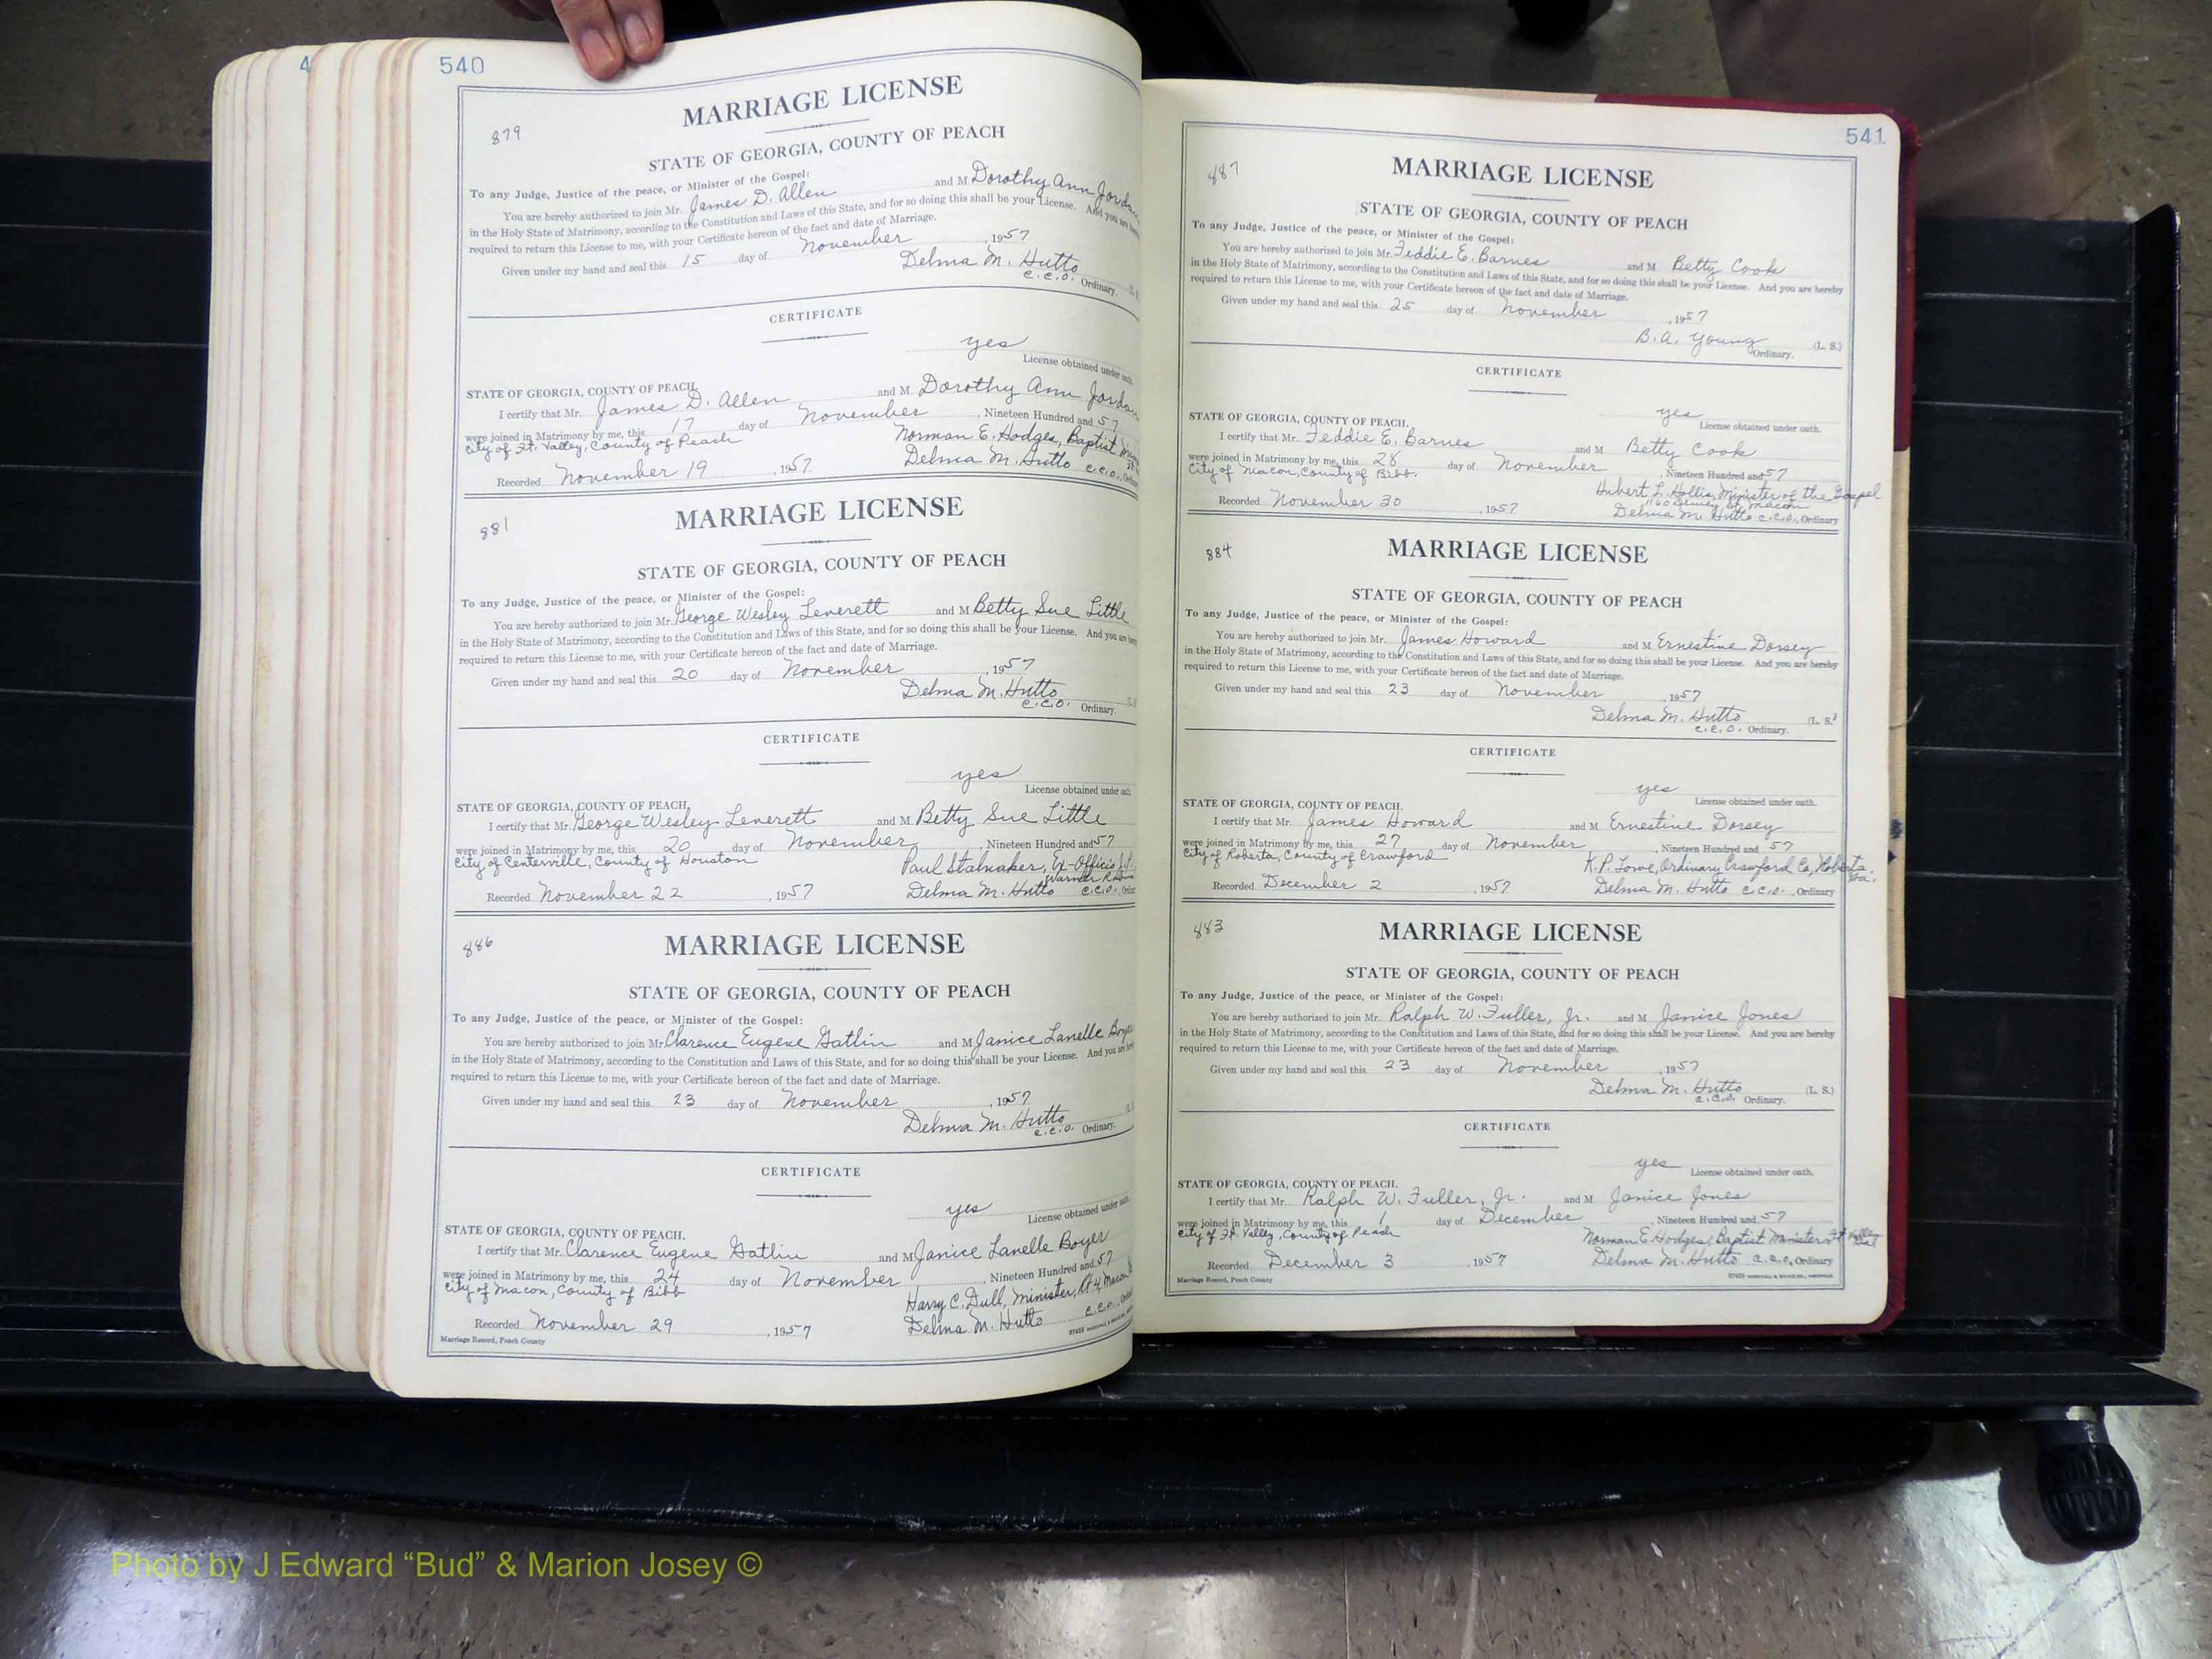 4
540
879
MARRIAGE LICENSE
STATE OF GEORGIA, COUNTY OF PEACH
To any Judge, Justice of the peace, or Minister of the Gospel:
You are hereby authorized to join Mr. James D. Allen and M Dorothy Ann
in the Holy State of Matrimony, according to the Constitution and Laws of this State, and for so doing this shall be your License. And you are
required to return this License to me, with your Certificate hereon of the fact and date of Marriage.
Given under my hand and seal this 15 day of November, 1957
Delma M. Hutto
C.C.O. Ordinary.
CERTIFICATE
yes
License obtained under oath.
STATE OF GEORGIA, COUNTY OF PEACH.
I certify that Mr. James D. Allen and M. Dorothy Ann
were joined in Matrimony by me, this 17 day of November, Nineteen Hundred and 57
City of Ft. Valley, County of Peach Norman E. Hodges, Baptist
Recorded November 19, 1957 Delma M. Hutto C.C.O.,
881
MARRIAGE LICENSE
STATE OF GEORGIA, COUNTY OF PEACH
To any Judge, Justice of the peace, or Minister of the Gospel:
You are hereby authorized to join Mr. George Wesley Leverett and M Betty Sue Little
in the Holy State of Matrimony, according to the Constitution and Laws of this State, and for so doing this shall be your License. And you are
required to return this License to me, with your Certificate hereon of the fact and date of Marriage.
Given under my hand and seal this 20 day of November, 1957
Delma M. Hutto
C.C.O. Ordinary.
CERTIFICATE
yes
License obtained under oath.
STATE OF GEORGIA, COUNTY OF PEACH.
I certify that Mr. George Wesley Leverett and M. Betty Sue Little
were joined in Matrimony by me, this 20 day of November, Nineteen Hundred and 57
City of Centerville, County of Houston Paul Stalnaker, Ex-Officio J.P.
Warner
Recorded November 22, 1957 Delma M. Hutto C.C.O.,
886
MARRIAGE LICENSE
STATE OF GEORGIA, COUNTY OF PEACH
To any Judge, Justice of the peace, or Minister of the Gospel:
You are hereby authorized to join Mr. Clarence Eugene Gatlin and M Janice Lanelle
in the Holy State of Matrimony, according to the Constitution and Laws of this State, and for so doing this shall be your License. And you are
required to return this License to me, with your Certificate hereon of the fact and date of Marriage.
Given under my hand and seal this 23 day of November, 1957
Delma M. Hutto
C.C.O. Ordinary.
CERTIFICATE
yes
License obtained under oath.
STATE OF GEORGIA, COUNTY OF PEACH.
I certify that Mr. Clarence Eugene Gatlin and M Janice Lanelle Boyer
were joined in Matrimony by me, this 24 day of November, Nineteen Hundred and 57
City of Macon, County of Bibb Harry C. Dull, Minister, Rt 4, Macon
Recorded November 29, 1957 Delma M. Hutto C.C.O.,
Marriage Record, Peach County
541
887
MARRIAGE LICENSE
STATE OF GEORGIA, COUNTY OF PEACH
To any Judge, Justice of the peace, or Minister of the Gospel:
You are hereby authorized to join Mr. Feddie E. Barnes and M Betty Cook
in the Holy State of Matrimony, according to the Constitution and Laws of this State, and for so doing this shall be your License. And you are hereby
required to return this License to me, with your Certificate hereon of the fact and date of Marriage.
Given under my hand and seal this 25 day of November, 1957
B.A. Young (L. S.)
Ordinary.
CERTIFICATE
yes
License obtained under oath.
STATE OF GEORGIA, COUNTY OF PEACH.
I certify that Mr. Feddie E. Barnes and M Betty Cook
were joined in Matrimony by me, this 28 day of November, Nineteen Hundred and 57
City of Macon, County of Bibb. Hubert L. Hollis, Minister of the Gospel
St, Macon
Recorded November 30, 1957 Delma M. Hutto C.C.O., Ordinary
884
MARRIAGE LICENSE
STATE OF GEORGIA, COUNTY OF PEACH
To any Judge, Justice of the peace, or Minister of the Gospel:
You are hereby authorized to join Mr. James Howard and M Ernestine Dorsey
in the Holy State of Matrimony, according to the Constitution and Laws of this State, and for so doing this shall be your License. And you are hereby
required to return this License to me, with your Certificate hereon of the fact and date of Marriage.
Given under my hand and seal this 23 day of November, 1957
Delma M. Hutto (L. S.)
C.C.O. Ordinary.
CERTIFICATE
yes
License obtained under oath.
STATE OF GEORGIA, COUNTY OF PEACH.
I certify that Mr. James Howard and M Ernestine Dorsey
were joined in Matrimony by me, this 27 day of November, Nineteen Hundred and 57
City of Roberta, County of Crawford K.P. Lowe, Ordinary Crawford Co, Roberta, Ga.
Recorded December 2, 1957 Delma M. Hutto C.C.O., Ordinary
883
MARRIAGE LICENSE
STATE OF GEORGIA, COUNTY OF PEACH
To any Judge, Justice of the peace, or Minister of the Gospel:
You are hereby authorized to join Mr. Ralph W. Fuller, Jr. and M Janice Jones
in the Holy State of Matrimony, according to the Constitution and Laws of this State, and for so doing this shall be your License. And you are hereby
required to return this License to me, with your Certificate hereon of the fact and date of Marriage.
Given under my hand and seal this 23 day of November, 1957
Delma M. Hutto (L. S.)
C.C.O. Ordinary.
CERTIFICATE
yes
License obtained under oath.
STATE OF GEORGIA, COUNTY OF PEACH.
I certify that Mr. Ralph W. Fuller, Jr. and M Janice Jones
were joined in Matrimony by me, this 1 day of December, Nineteen Hundred and 57
City of Ft. Valley, County of Peach Norman E. Hodges, Baptist Minister Ft Valley
Recorded December 3, 1957 Delma M. Hutto C.C.O., Ordinary
Marriage Record, Peach County
Photo by J Edward “Bud” & Marion Josey ©